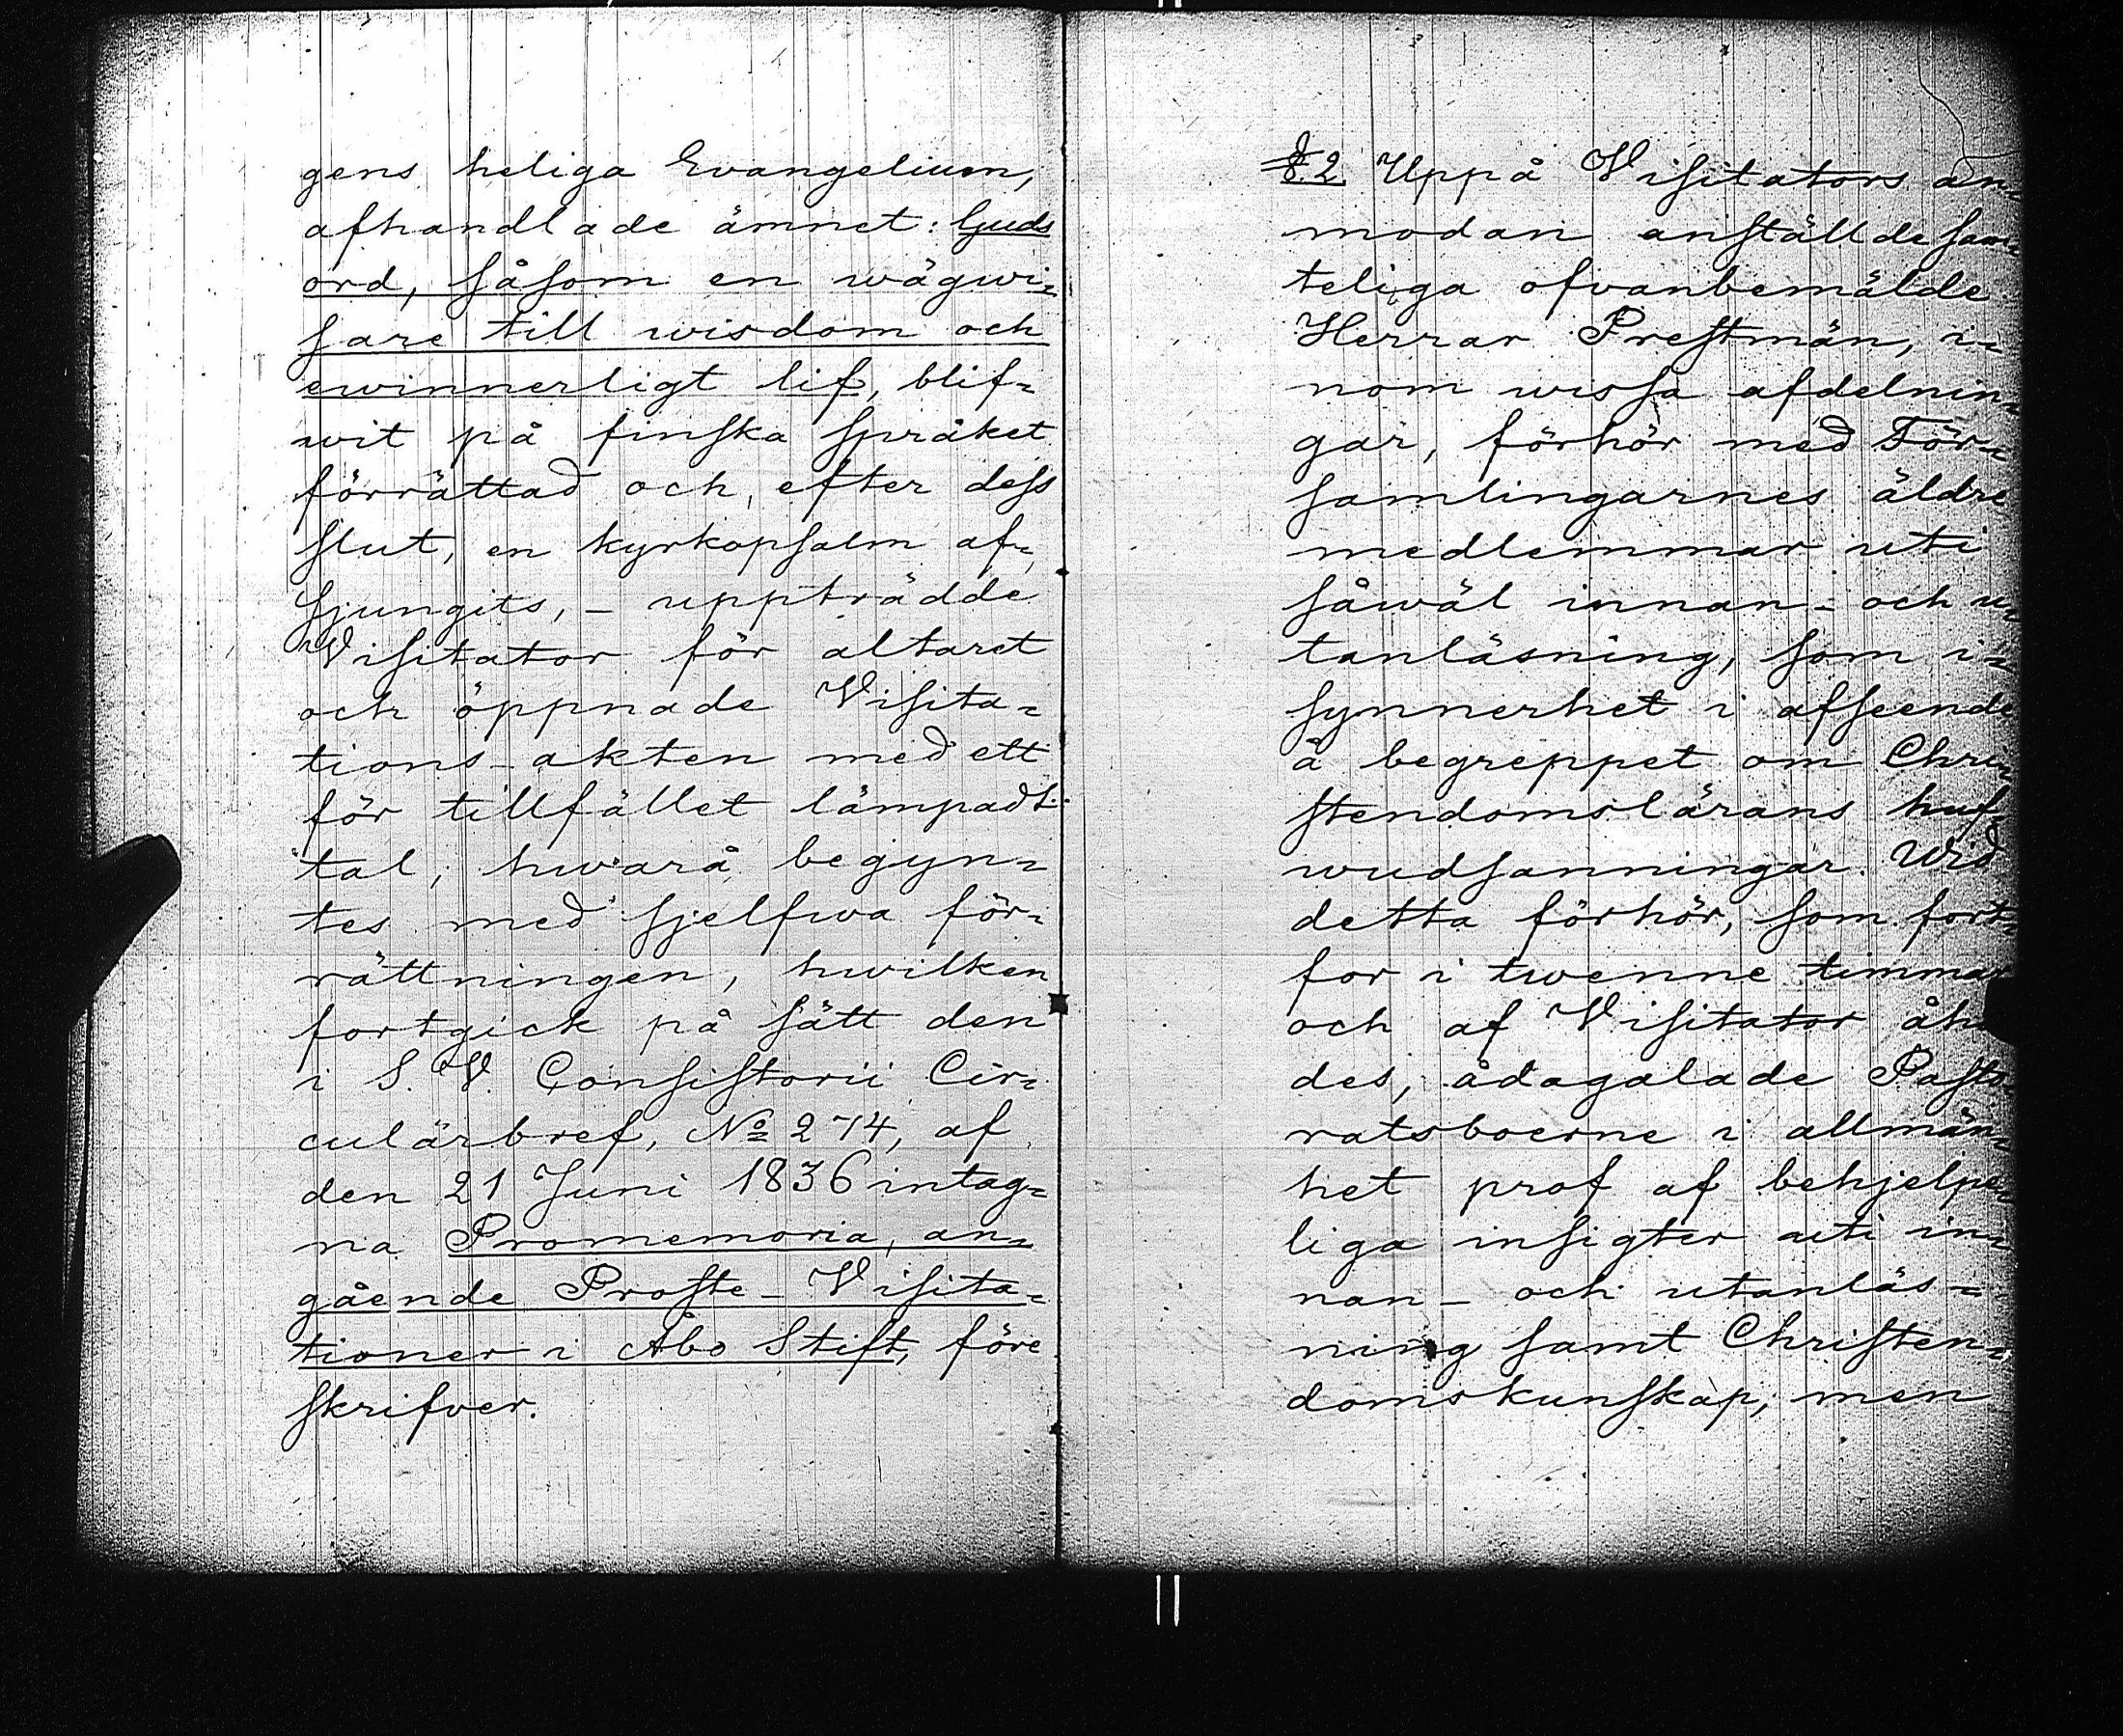 gens heliga Evangelium,
afhandlade ämnet: Guds
ord, såsom en wägwi=
sare till wisdom och
ewinnerligt lif, blif=
wit på finska språket
förrättad och, efter dess
slut, en kyrkopsalm af=
sjungits, – uppträdde
Visitator för altaret
och öppnade Visita=
tions-akten med ett
för tillfället lämpadt
tal, hwarå begyn=
tes med sjelfwa för=
rättningen, hwilken
fortgick på sätt den
i S. V. Consistorii Cir=
culärbref, No 274, af
den 21 Juni 1836 intag=
na Promemoria, an=
gående Proste-Visita=
tioner i Åbo Stift, före
skrifver.
§ 2 Uppå Visitators an=
modan anställde sam=
teliga ofvanbemälde
Herrar Prestmän, i=
nom wissa afdelnin=
gar, förhör med För=
samlingarnes äldre
medlemmar uti
såwäl innan- och u=
tanläsning, som i=
synnerhet i afseende
å begreppet om Chri=
stendomslärans huf=
wudsanningar. Wid
detta förhör, som fort=
for i twenne timmar
och af Visitator
des, ådagalade Pasto
ratsboerne i allmän=
het prof af behjelpe=
liga insigter uti in=
nan- och utanläs=
ning samt Christen=
domskunskap, men